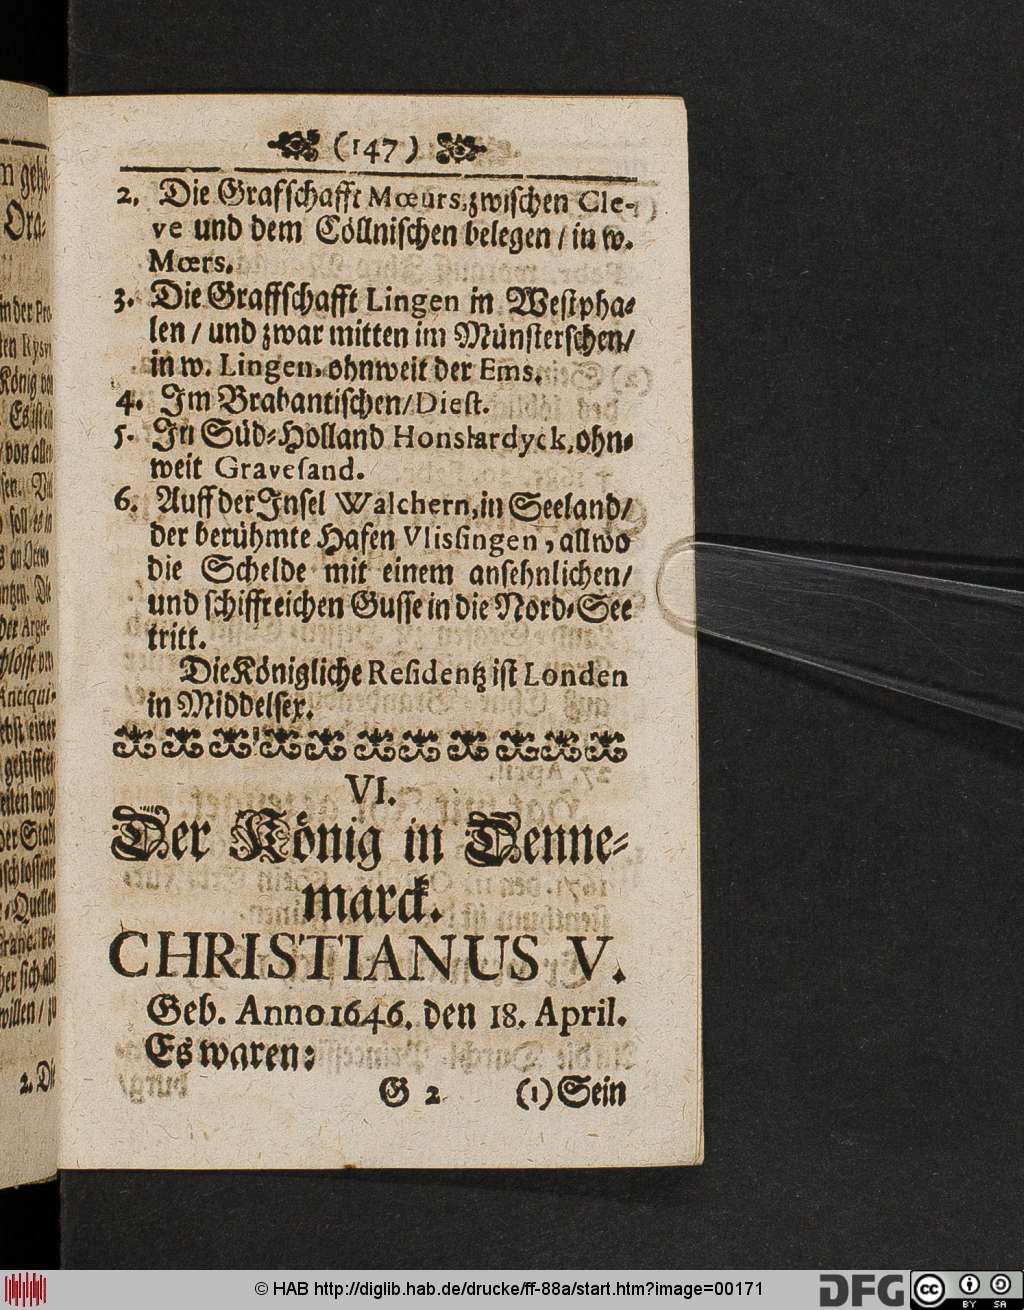 (147)
2. Die Grafschafft Mœurs, zwischen Cle-
ve und dem Cöllnischen belegen / in w.
Mœrs.
3. Die Graffschafft Lingen in Westpha-
len / und zwar mitten im Münsterschen /
in w. Lingen, ohnweit der Ems.
4. Im Brabantischen / Diest.
5. In Süd-Holland Honslardyck, ohn-
weit Gravesand.
6. Auff der Insel Walchern, in Seeland /
der berühmte Hafen Vlissingen, allwo
die Schelde mit einem ansehnlichen /
und schiffreichen Gusse in die Nord-See
tritt.
Die Königliche Residentz ist Londen
in Middelsex.
VI.
Der König in Denne-
marck.
CHRISTIANUS V.
Geb. Anno 1646. den 18. April.
Es waren:
G 2 (1) Sein
© HAB http://diglib.hab.de/drucke/ff-88a/start.htm?image=00171
DFG
cc BY SA